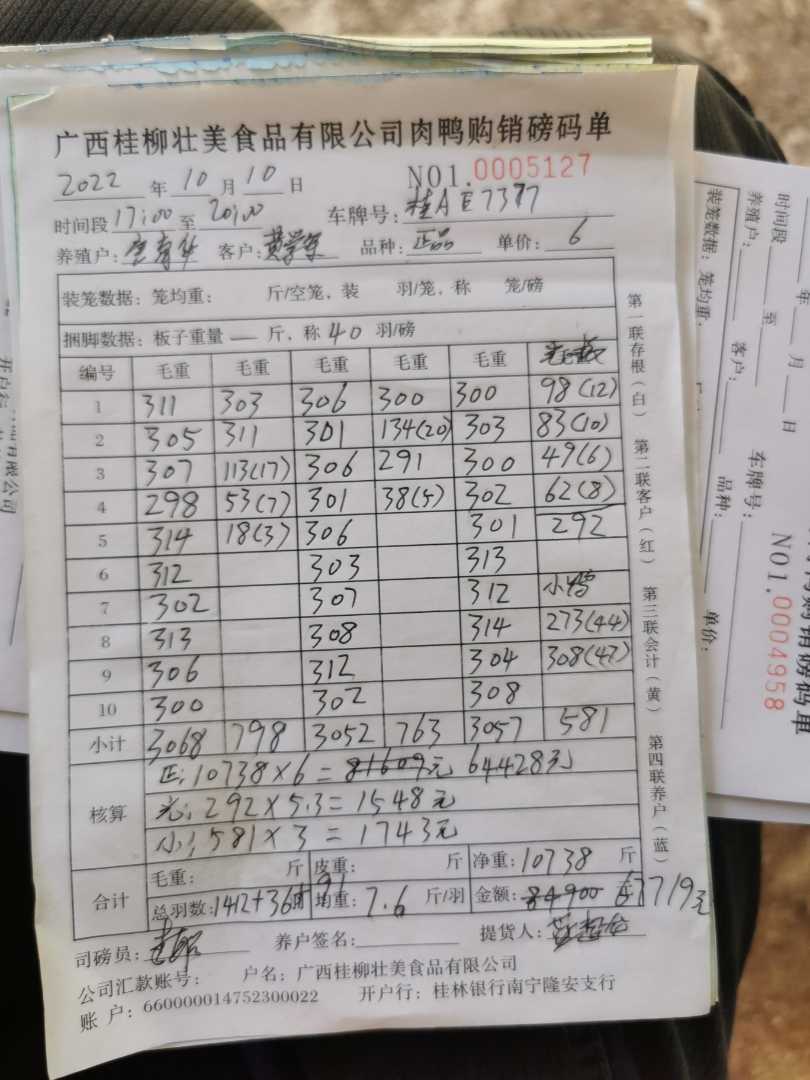 广西桂柳壮美食品有限公司肉鸭购销磅码单
2022 年 10 月 10 日 NO1.0005127
时间段 17:00 至 20:00 车牌号: 桂A E7377
养殖户: 客户: 黄学军 品种: 正品 单价: 6
装笼数据: 笼均重: 斤/空笼, 装 羽/笼, 称 笼/磅
捆脚数据: 板子重量 — 斤, 称 40 羽/磅
编号 毛重 毛重 毛重 毛重 毛重
1 311 303 306 300 300 98(12)
2 305 311 301 134(20) 303 83(10)
3 307 113(17) 306 291 300 49(6)
4 298 53(7) 301 38(5) 302 62(8)
5 314 18(3) 306 301 292
6 312 303 313
7 302 307 312 小鸭
8 313 308 314 273(44)
9 306 312 304 308(47)
10 300 302 308
小计 3068 798 3052 763 3057 581
核算
正: 10738×6= 81609元 64428元
光: 292×5.3=1548元
小: 581×3=1743元
合计
毛重: 斤 皮重: 斤 净重: 10738 斤
总羽数: 1412+36+91 均重: 7.6 斤/羽 金额: 84900 67719元
司磅员: 养户签名: 提货人:
公司汇款账号: 户名: 广西桂柳壮美食品有限公司
账 户: 660000014752300022 开户行: 桂林银行南宁隆安支行
第一联存根(白) 第二联客户(红) 第三联会计(黄) 第四联养户(蓝)
磅码单
NO1.0004958
年 月 日
时间段 至 车牌号:
养殖户: 客户: 品种: 单价:
装笼数据: 笼均重:
开户行
有限公司